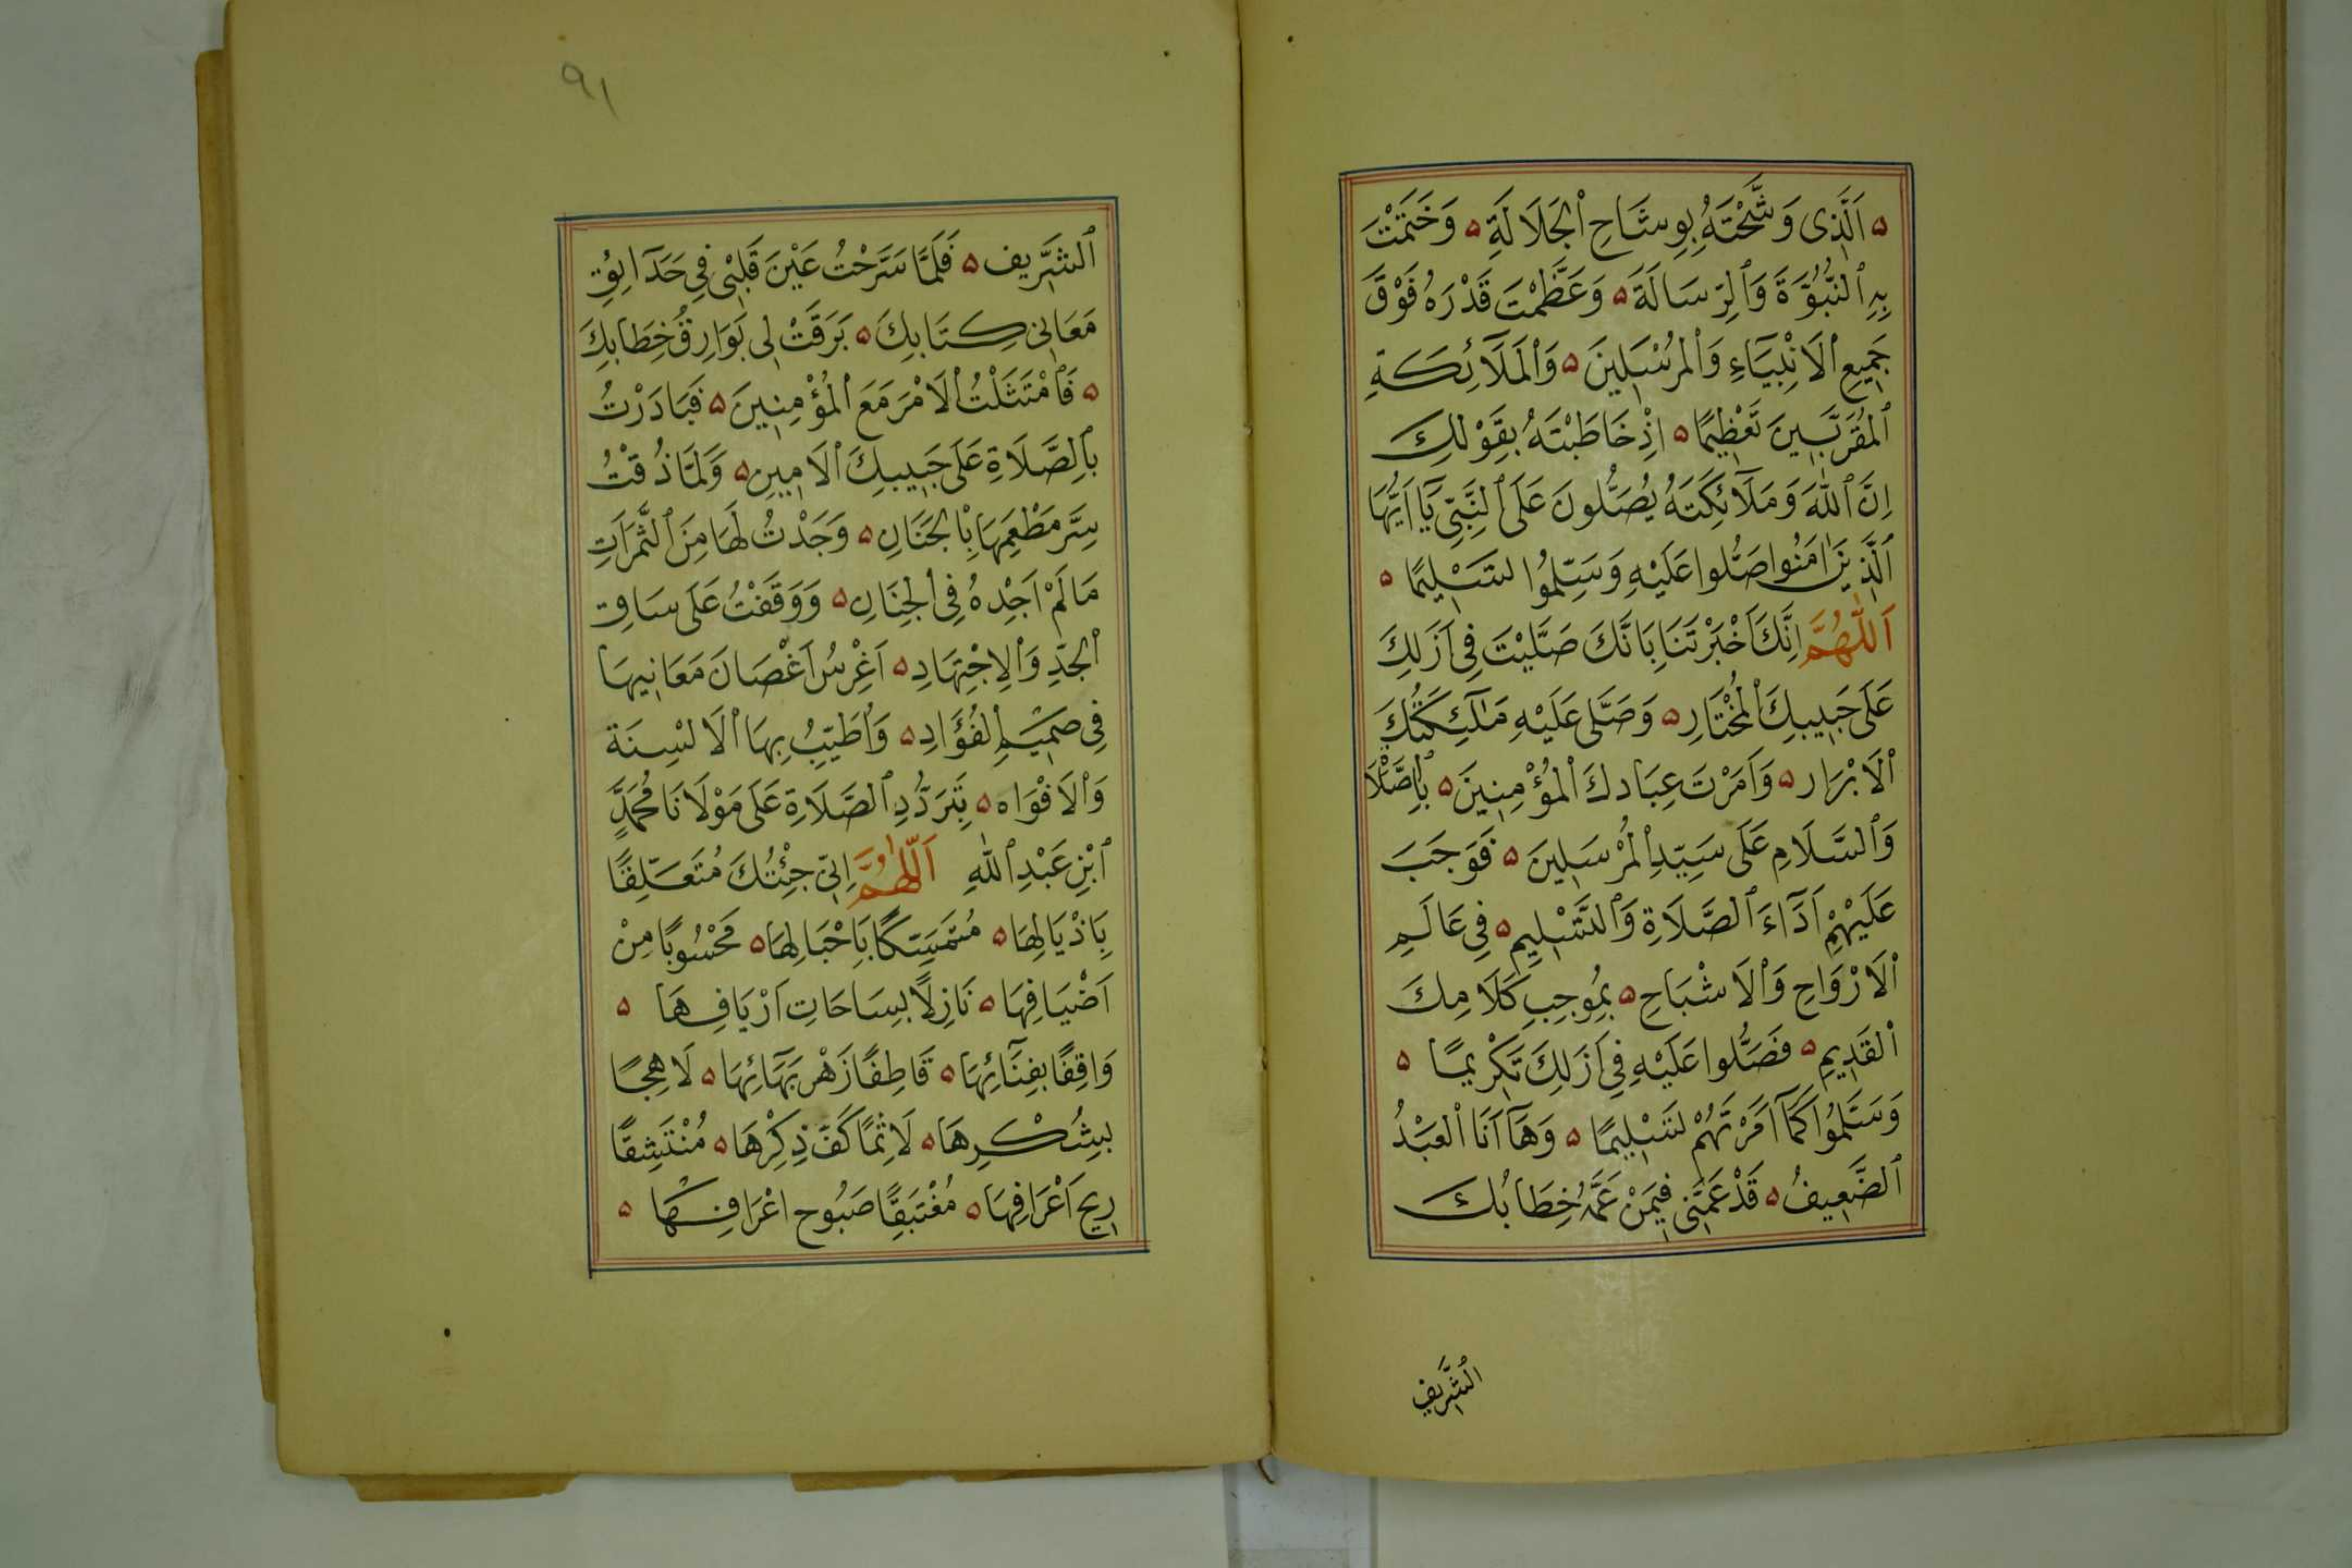 ۵ اَلَّذِى وَشَّحْتَهُ بِوِشَاحِ ٱلْجَلَالَةِ ۵ وَخَتَمْتَ
بِهِ ٱلنُّبُوَّةَ وَٱلرِّسَالَةَ ۵ وَعَظَّمْتَ قَدْرَهُ فَوْقَ
جَمِيعِ ٱلْاَنْبِيَاءِ وَٱلْمُرْسَلِينَ ۵ وَٱلْمَلَآئِكَةِ
ٱلْمُقَرَّبِينَ تَعْظِيمًا ۵ اِذْ خَاطَبْتَهُ بِقَوْلِكَ
اِنَّ ٱللّٰهَ وَمَلَآئِكَتَهُ يُصَلُّونَ عَلَى ٱلنَّبِىِّ يَآ اَيُّهَا
ٱلَّذِينَ اٰمَنُوا صَلُّوا عَلَيْهِ وَسَلِّمُوا تَسْلِيمًا ۵
اَللّٰهُمَّ اِنَّكَ اَخْبَرْتَنَا بِاَنَّكَ صَلَّيْتَ فِى اَزَلِكَ
عَلَى حَبِيبِكَ ٱلْمُخْتَارِ ۵ وَصَلَّى عَلَيْهِ مَلٰٓئِكَتُكَ
ٱلْاَبْرَار ۵ وَاَمَرْتَ عِبَادكَ ٱلْمُؤْمِنِينَ ۵ بِٱلصَّلَاة
وَٱلسَّلَامِ عَلَى سَيِّدِ ٱلْمُرْسَلِينَ ۵ فَوَجَبَ
عَلَيْهِمْ اَدَآءَ ٱلصَّلَاةِ وَٱلتَّسْلِيمِ ۵ فِى عَالَمِ
ٱلْاَرْوَاحِ وَٱلْاَشْبَاحِ ۵ بِمُوجِبِ كَلَامِكَ
ٱلْقَدِيمِ ۵ فَصَلُّوا عَلَيْهِ فِى اَزَلِكَ تَكْرِيمًا ۵
وَسَلَّمُوا كَمَآ اَمَرْتَهُمْ تَسْلِيمًا ۵ وَهَآ اَنَا ٱلْعَبْدُ
ٱلضَّعِيفُ ۵ قَدْ عَمَّنِى فِيمَنْ عَمَّهُ خِطَابُكَ
ٱلشَّرِيفِ
٩١
ٱلشَّرِيف ۵ فَلَمَّا سَرَّحْتُ عَيْنَ قَلْبِى فِى حَدَآئِقِ
مَعَانِى كِتَابِكَ ۵ بَرَقَتْ لِى بَوَارِقُ خِطَابِكَ
۵ فَٱمْتَثَلْتُ ٱلْاَمْرَ مَعَ ٱلْمُؤْمِنِينَ ۵ فَبَادَرْتُ
بِٱلصَّلَاةِ عَلَى حَبِيبِكَ ٱلْاَمِينِ ۵ وَلَمَّا ذُقْتُ
سِرَّ مَطْعَمِهَا بِٱلْجَنَانِ ۵ وَجَدْتُ لَهَا مِنَ ٱلثَّمَرَاتِ
مَا لَمْ اَجِدْهُ فِى ٱلْجِنَانِ ۵ وَوَقَفْتُ عَلَى سَاقِ
ٱلْجِدِّ وَٱلْاِجْتِهَادِ ۵ اَغْرِسُ اَغْصَانَ مَعَانِيهَا
فِى صَمِيمِ ٱلْفُؤَادِ ۵ وَاُطَيِّبُ بِهَا ٱلْاَلْسِنَة
وَٱلْاَفْوَاه ۵ بِتَرَدُّدِ ٱلصَّلَاةِ عَلَى مَوْلَانَا مُحَمَّدٍ
ٱبْنِ عَبْدِ ٱللّٰهِ اَللّٰهُمَّ اِنِّى جِئْتُكَ مُتَعَلِّقًا
بِاَذْيَالِهَا ۵ مُتَمَسِّكًا بِاَحْبَالِهَا ۵ مَحْسُوبًا مِنْ
اَضْيَافِهَا ۵ نَازِلًا بِسَاحَاتِ اَرْيَافِهَا ۵
وَاقِفًا بِفِنَآئِهَا ۵ قَاطِفًا زَهْر بَهَآئِهَا ۵ لَاهِجًا
بِشُكْرِهَا ۵ لَاثِمًا كَفَّ ذِكْرِهَا ۵ مُنْتَشِقًا
رِيحَ اَعْرَافِهَا ۵ مُغْتَبَقًا صَبُوح اعْرَافِهَا ۵